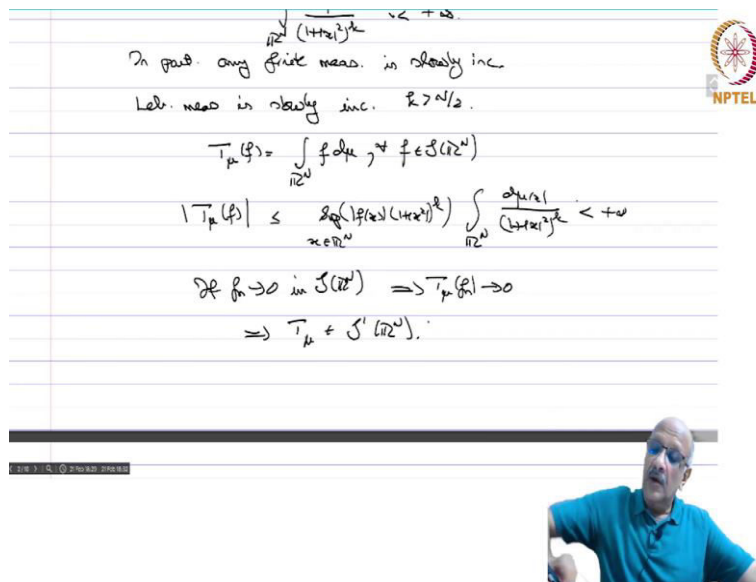 ∫_{ℝ^N} 1/(1+|x|²)^k < +∞.
NPTEL
In part. any finite meas. is slowly inc.
Leb. meas is slowly inc. k > N/2.
T_μ(f) = ∫_{ℝ^N} f dμ, ∀ f ∈ S(ℝ^N)
|T_μ(f)| ≤ sup_{x∈ℝ^N} (|f(x)| (1+|x|²)^k) ∫_{ℝ^N} dμ(x)/(1+|x|²)^k < +∞
If fn → 0 in S(ℝ^N) ⟹ T_μ(fn) → 0
⟹ T_μ ∈ S'(ℝ^N).